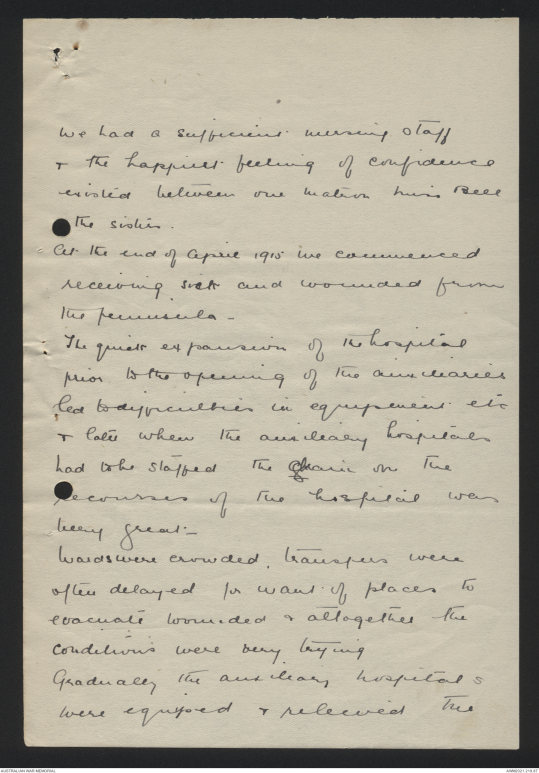 We had a sufficient nursing staff
& the happiest feeling of confidence
existed between our matron Miss Bell
& the sisters.
At the end of April 1915 we commenced
receiving sick and wounded from
the peninsula -
The quick expansion of the hospital
prior to the opening of the auxiliaries
led to difficulties in equipment etc
& later when the auxiliary hospitals
had to be staffed the drain on the
recourses of the hospital was
very great -
Wards were crowded, transfers were
often delayed for want of places to
evacuate wounded & altogether the
conditions were very trying
Gradually the auxiliary hospitals
were equipped & relieved the
AUSTRALIAN WAR MEMORIAL